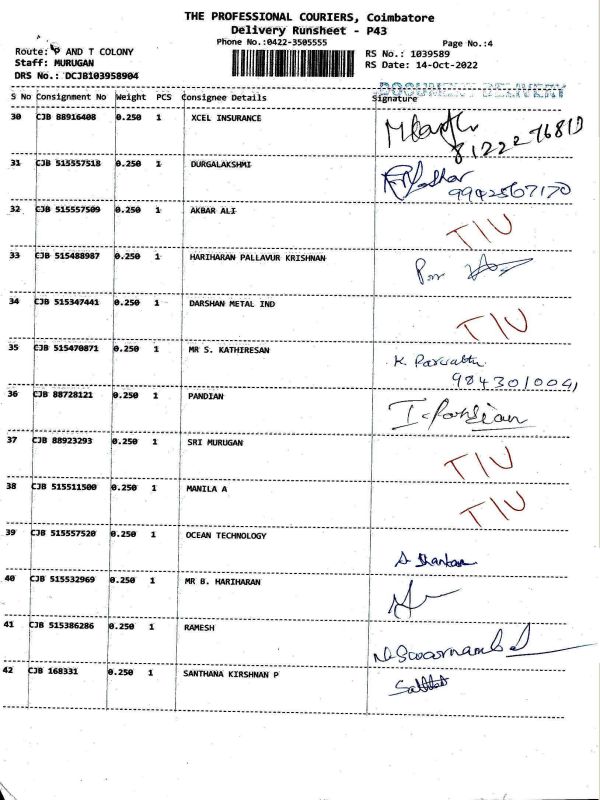 THE PROFESSIONAL COURIERS, Coimbatore
Delivery Runsheet - P43
Phone No.:0422-3505555
Page No.:4
Route: P AND T COLONY
RS No.: 1039589
Staff: MURUGAN
RS Date: 14-Oct-2022
DRS No.: DCJB103958904
DOCUMENT DELIVERY
S No Consignment No Weight PCS Consignee Details Signature
30 CJB 88916408 0.250 1 XCEL INSURANCE
31 CJB 515557518 0.250 1 DURGALAKSHMI
9942567170
32 CJB 515557509 0.250 1 AKBAR ALI T/U
33 CJB 515488987 0.250 1 HARIHARAN PALLAVUR KRISHNAN
34 CJB 515347441 0.250 1 DARSHAN METAL IND T/U
35 CJB 515470871 0.250 1 MR S. KATHIRESAN K. Parvathi
9843010041
36 CJB 88728121 0.250 1 PANDIAN I-Pandian
37 CJB 88923293 0.250 1 SRI MURUGAN T/U
38 CJB 515511500 0.250 1 MANILA A T/U
39 CJB 515557520 0.250 1 OCEAN TECHNOLOGY
40 CJB 515532969 0.250 1 MR B. HARIHARAN
41 CJB 515386286 0.250 1 RAMESH
42 CJB 168331 0.250 1 SANTHANA KIRSHNAN P